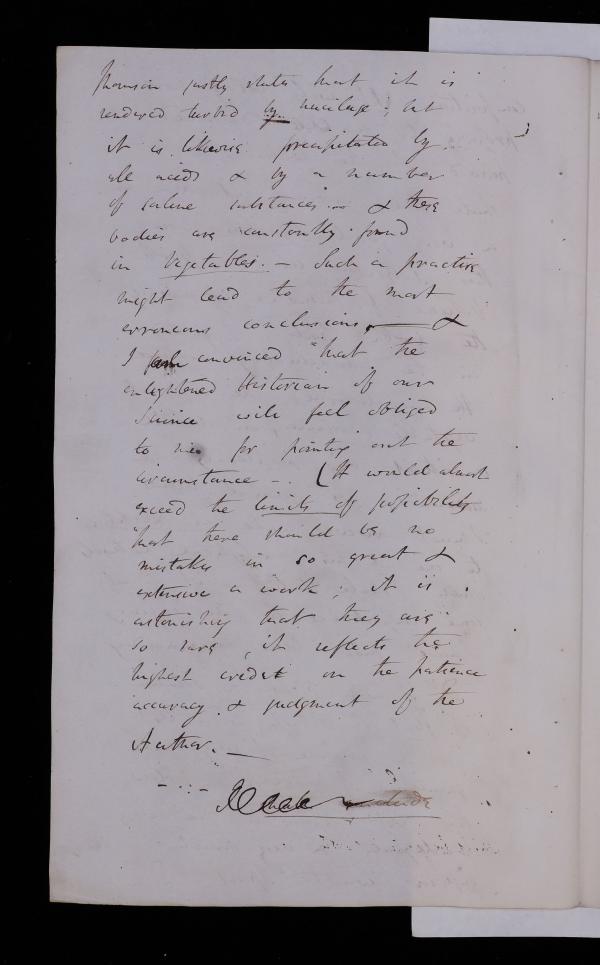 Thomson justly states that it is
rendered turbid by mucilage; but
it is likewise precipitated by
all acids & by a number
of saline substances — & these
bodies are constantly found
in Vegetables. — Such a practise
might lead to the most
erroneous conclusions, — &
I am convinced that the
enlightened Historian of our
Science will feel obliged
to me for pointing out the
circumstance —. (It would almost
exceed the limits of possibility
that there should be no
mistakes in so great &
extensive a work; it is
astonishing that they are
so rare, it reflects the
highest credit on the patience
accuracy & judgment of the
Author. —